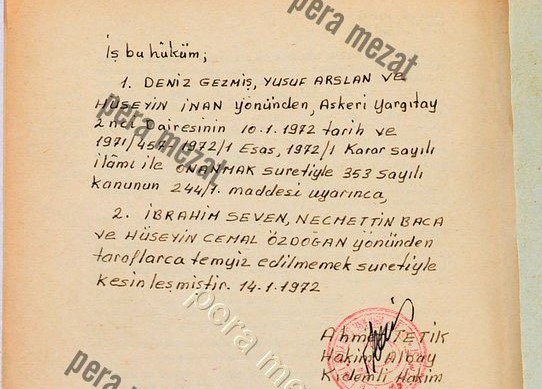 İş bu hüküm;
1. DENİZ GEZMİŞ, YUSUF ARSLAN ve
HÜSEYİN İNAN yönünden, Askeri Yargıtay
2 nci Dairesinin 10.1.1972 tarih ve
1971/457, 1972/1 Esas, 1972/1 Karar sayılı
ilâmı ile ONANMAK suretiyle 353 sayılı
kanunun 244/1. maddesi uyarınca,
2. İBRAHİM SEVEN, NECMETTİN BACA
ve HÜSEYİN CEMAL ÖZDOĞAN yönünden
taraflarca temyiz edilmemek suretiyle
kesinleşmiştir. 14.1.1972
Ahmet TETİK
Hakim Albay
Kıdemli Hakim
pera mezat
pera mezat
pera mezat
pera mezat
pera mezat